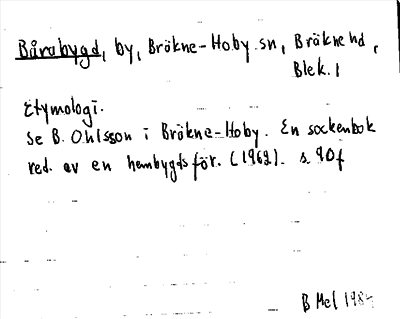 Bårabygd, by, Bräkne-Hoby sn, Bräkne hd,
Blek. l
Etymologi.
Se B. Ohlsson i Bräkne-Hoby. En sockenbok
red. av en hembygdsför. (1962). s. 90f
B Mel